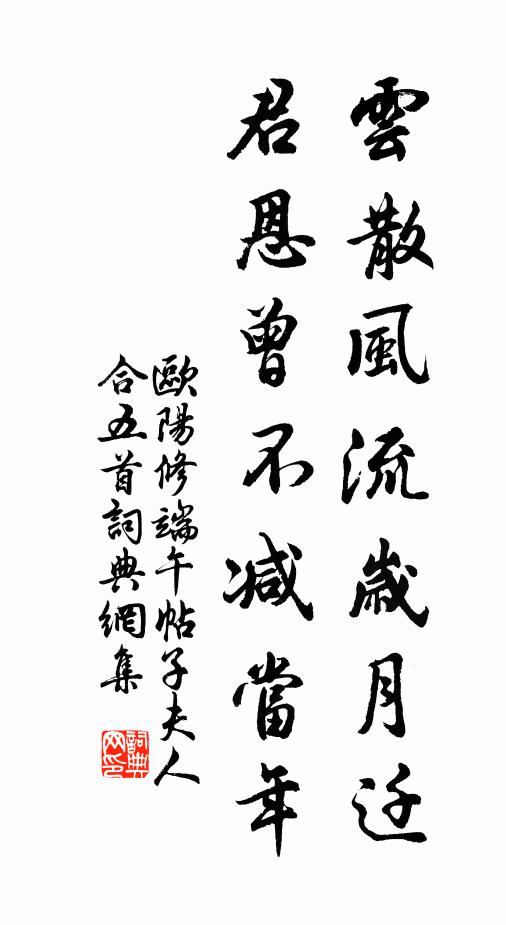 雲散風流歲月迁
君恩曾不减當年
歐陽修端午帖子夫人
合五首詞典網集
詞典
网印